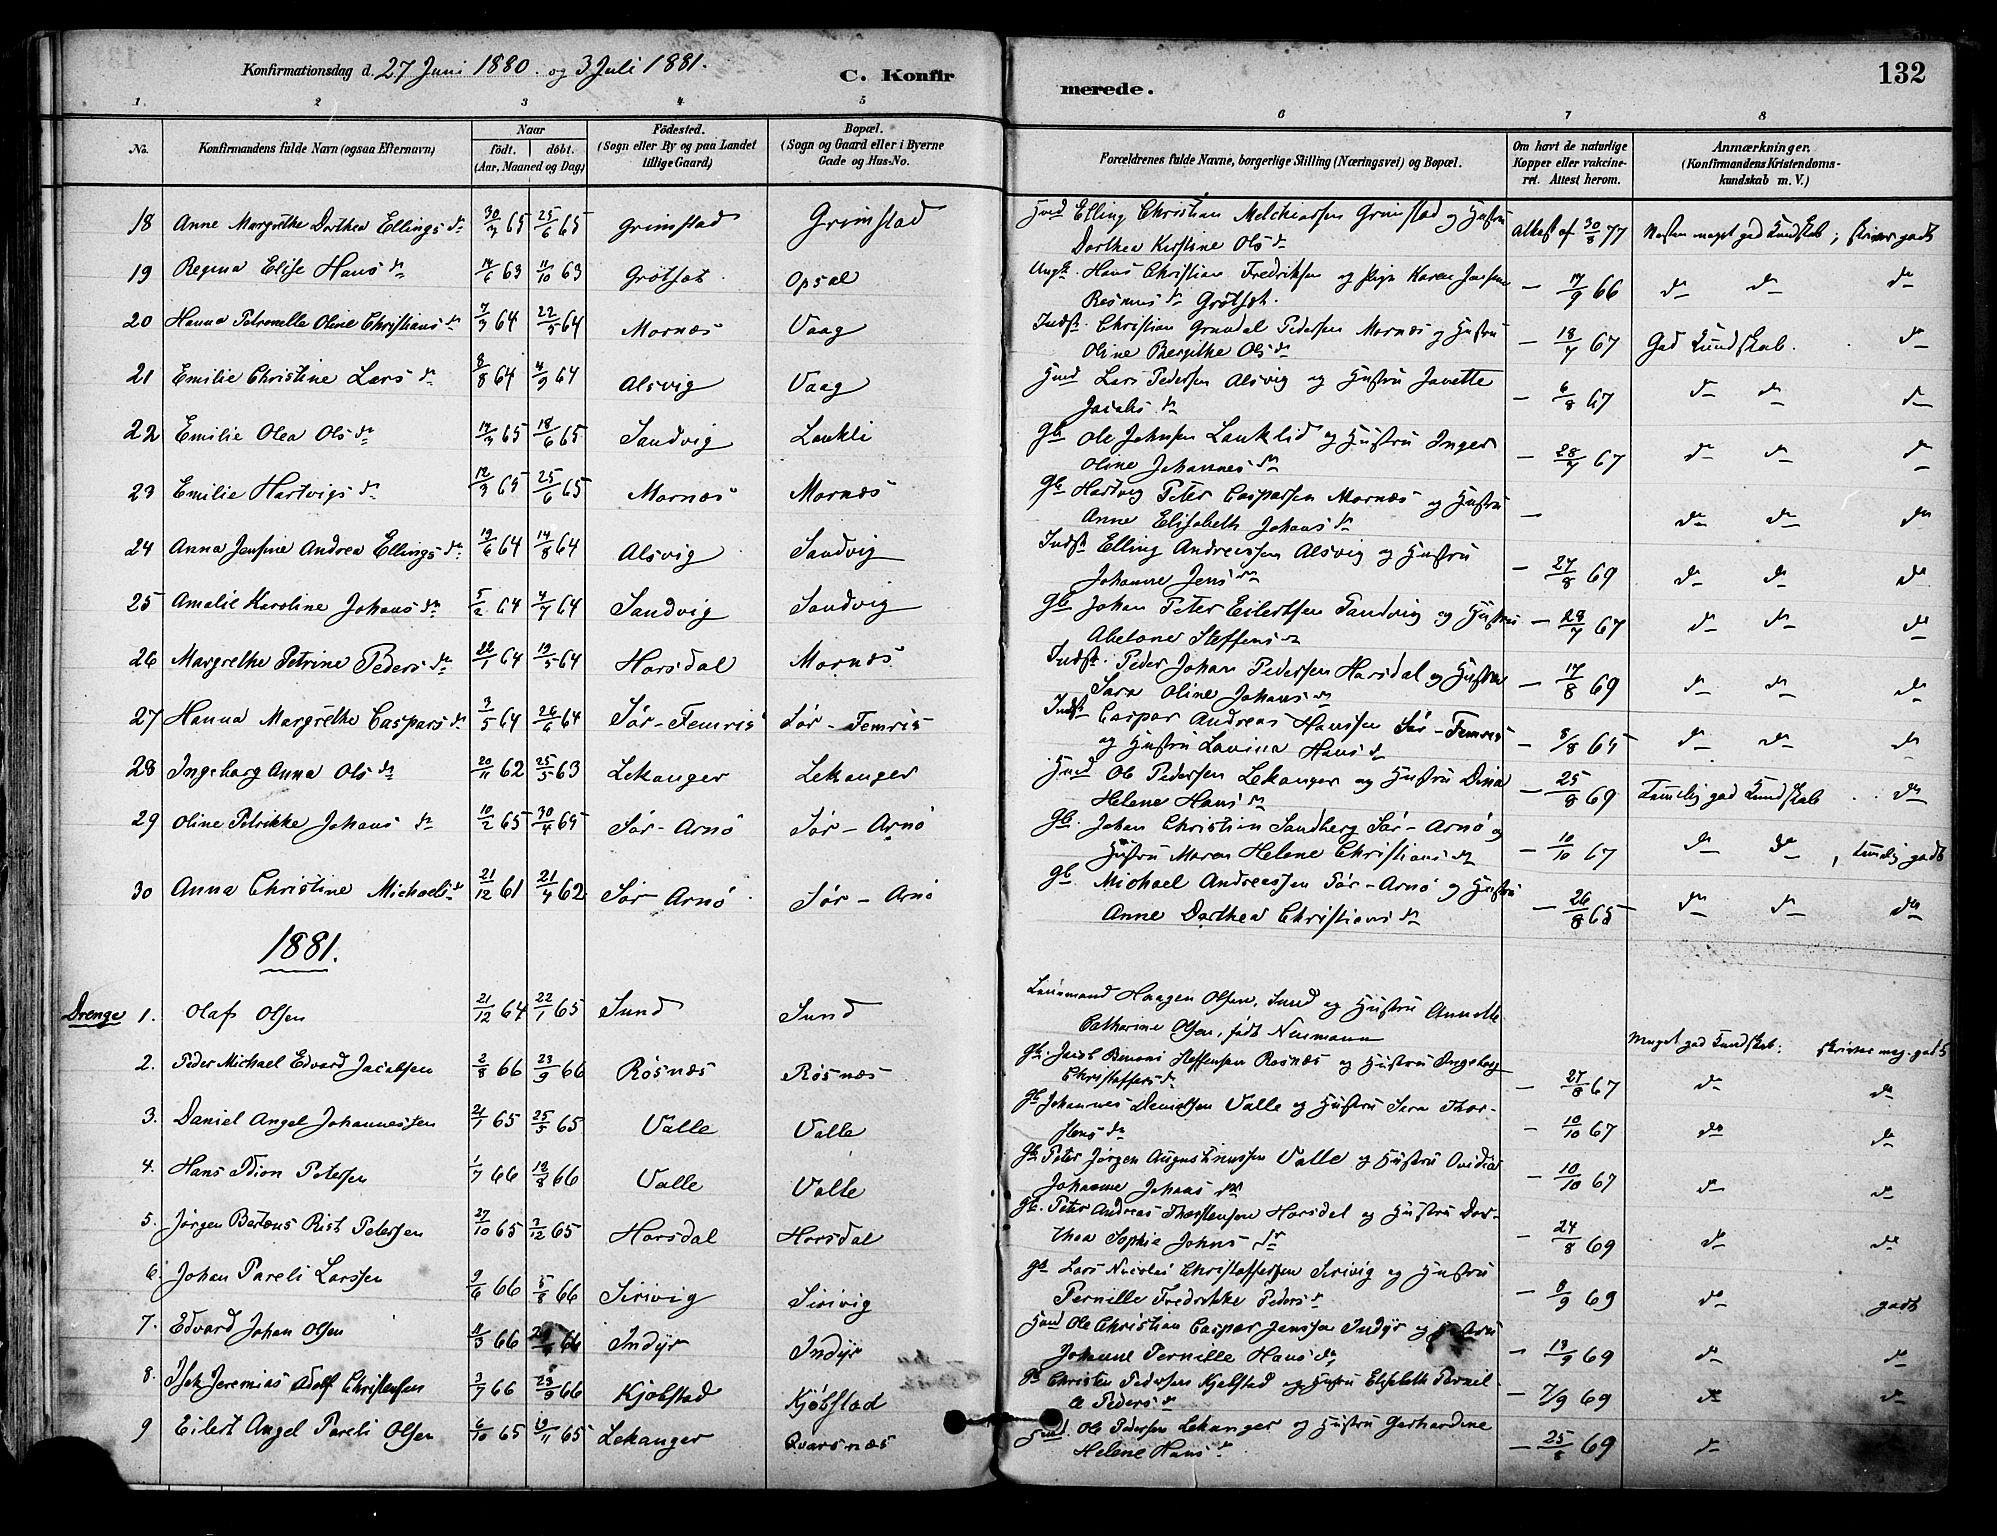 Konfirmationsdag d. 27 Juni 1880. og 3 Juli 1881.
C. Konfirmerede.
132
1 2 3 4 5 6 7 8
No. Konfirmandens fulde Navn (ogsaa Efternavn) Naar födt. döbt. (Aar, Maaned og Dag) Födested. (Sogn eller By og paa Landet tillige Gaard) Bopæl. (Sogn og Gaard eller i Byerne Gade og Hus-No.) Forældrenes fulde Navne, borgerlige Stilling (Næringsvei) og Bopæl. Om havt de naturlige Kopper eller vakcineret. Attest herom. Anmærkninger. (Konfirmandens Kristendomskundskab m. V.)
18 Anne Margrethe Dorthea Ellings dr 30/3 65 25/6 65 Grimstad Grimstad Hmd Elling Christian Melchiorsen Grimstad og Hustru
Dorthea Kirstine Ols dr Attest af 30/8 77 Næsten meget god Kundskab; skriver godt
19 Regina Elise Hans dr 14/6 63 11/10 63 Grötsöt Opsal Ungk. Hans Christian Fredriksen og Pige Karen
Rasmus dr Grötsöt. — 17/9 66 do do do
20 Hanna Petronelle Oline Christians dr 7/3 64 22/5 64 Mornæs Vaag Indst. Christian Gründal Pedersen Mornæs og Hustru
Oline Bergithe Ols dr — 18/7 67 God Kundskab. do
21 Emilie Christine Lars dr 8/8 64 4/9 64 Alsvig Vaag Hmd Lars Pedersen Alsvig og Hustru Janette
Jacobs dr — 6/8 67 do do do
22 Emilie Olea Ols dr 14/3 65 18/6 65 Sandvig Laukli Gb Ole Johnsen Lauklid og Hustru Inger
Oline Johannes dr — 28/7 67 do do do
23 Emilie Hartvigs dr 12/3 65 25/6 65 Mornæs Mornæs Gb Hartvig Peter Caspersen Mornæs og Hustru
Anne Elisabeth Johans dr — do do do
24 Anna Jensine Andrea Ellings dr 19/6 64 14/8 64 Alsvig Sandvig Indst Elling Andreassen Alsvig og Hustru
Johanne Jens dr — 27/8 69 do do do
25 Amalie Karoline Johans dr 5/2 64 4/7 64 Sandvig Sandvig Gb Johan Peter Eilertsen Sandvig og Hustru
Abelone Steffens dr — 28/7 67 do do do
26 Margrethe Petrine Peders dr 22/1 64 19/5 64 Horsdal Mornæs Indst. Peder Johan Pedersen Horsdal og Hustru
Sara Oline Johans dr — 17/8 69 do do do
27 Hanna Margrethe Caspars dr 3/5 64 26/6 64 Sör-Femris Sör-Femris Indst Caspar Andreas Hansen Sör-Femris
og Hustru Lovina Hans dr — 8/8 65 do do do
28 Ingeborg Anna Ols dr 20/11 62 25/5 63 Lekanger Lekanger Hmd Ole Pedersen Lekanger og Hustru Dina
Helene Hans dr — 25/8 69 Temelig god Kundskab do
29 Oline Petrikke Johans dr 10/2 65 30/4 65 Sör-Arnö Sör-Arnö Gb. Johan Christian Sandberg Sör-Arnö og
Hustru Maren Helene Christians dr — 10/10 67 do do, temelig godt
30 Anna Christine Michaels dr 21/12 61 21/4 62 Sör Arnö Sör-Arnö Gb Michael Andreassen Sör-Arnö og Hustru
Anne Dorthea Christians dr — 26/8 65 do do do
1881.
Drenge 1. Olaf Olsen 21/12 64 22/1 65 Sund Sund Lensmand Haagen Olsen, Sund og Hustru Annette
Catharine Olsen, født Neumann Meget god Kundskab. skriver meg. godt
2. Peder Michael Edvard Jacobsen 2/8 66 23/9 66 Rösnæs Rösnæs Gb. Jacob Benoni Steffensen Rosnæs og Hustru Ingeborg
Christoffers dr — 27/8 67 do do
3. Daniel Angel Johannessen 21/1 65 25/5 65 Valle Valle Gb Johannes Danielsen Valle og Hustru Sara Thorstens dr — 10/10 67 do do
4. Hans Edion Petersen 1/7 66 19/8 66 Valle Valle Gb Peter Jörgen Augustinussen Valle og Hustru Ovidia
Johanne Johans dr — 10/10 67 do do
5. Jörgen Berteus Rist Petersen 27/10 65 3/12 65 Horsdal Horsdal Gb. Peter Andreas Thorstensen Horsdal og Hustru Dorthea Sophie Johns dr — 24/8 69 do do
6. Johan Pareli Larssen 9/6 66 5/8 66 Sirivig Sirivig Gb Lars Nicolai Christoffersen Sirivig og Hustru
Pernille Fredrikke Peders dr — 8/9 69 do godt
7. Edvard Johan Olsen 11/3 66 66 Indyr Indyr Hmd Ole Christian Caspar Jenssen Indyr og Hustru
Johanne Pernille Hans dr — 19/9 69 do do
8. Isak Jeremias Adolf Christensen 3/7 66 23/9 66 Kjöbstad Kjöbstad Gb Christen Pedersen Kjøbstad og Hustru Elisabeth Pernille Peders dr — 7/9 69 do do
9 Eilert Angel Pareli Olsen 6/10 65 19/11 65 Lekanger Qvarsnæs Hmd. Ole Pedersen Lekanger og Hustru Gerhardine
Helene Hans dr — 25/8 69 do